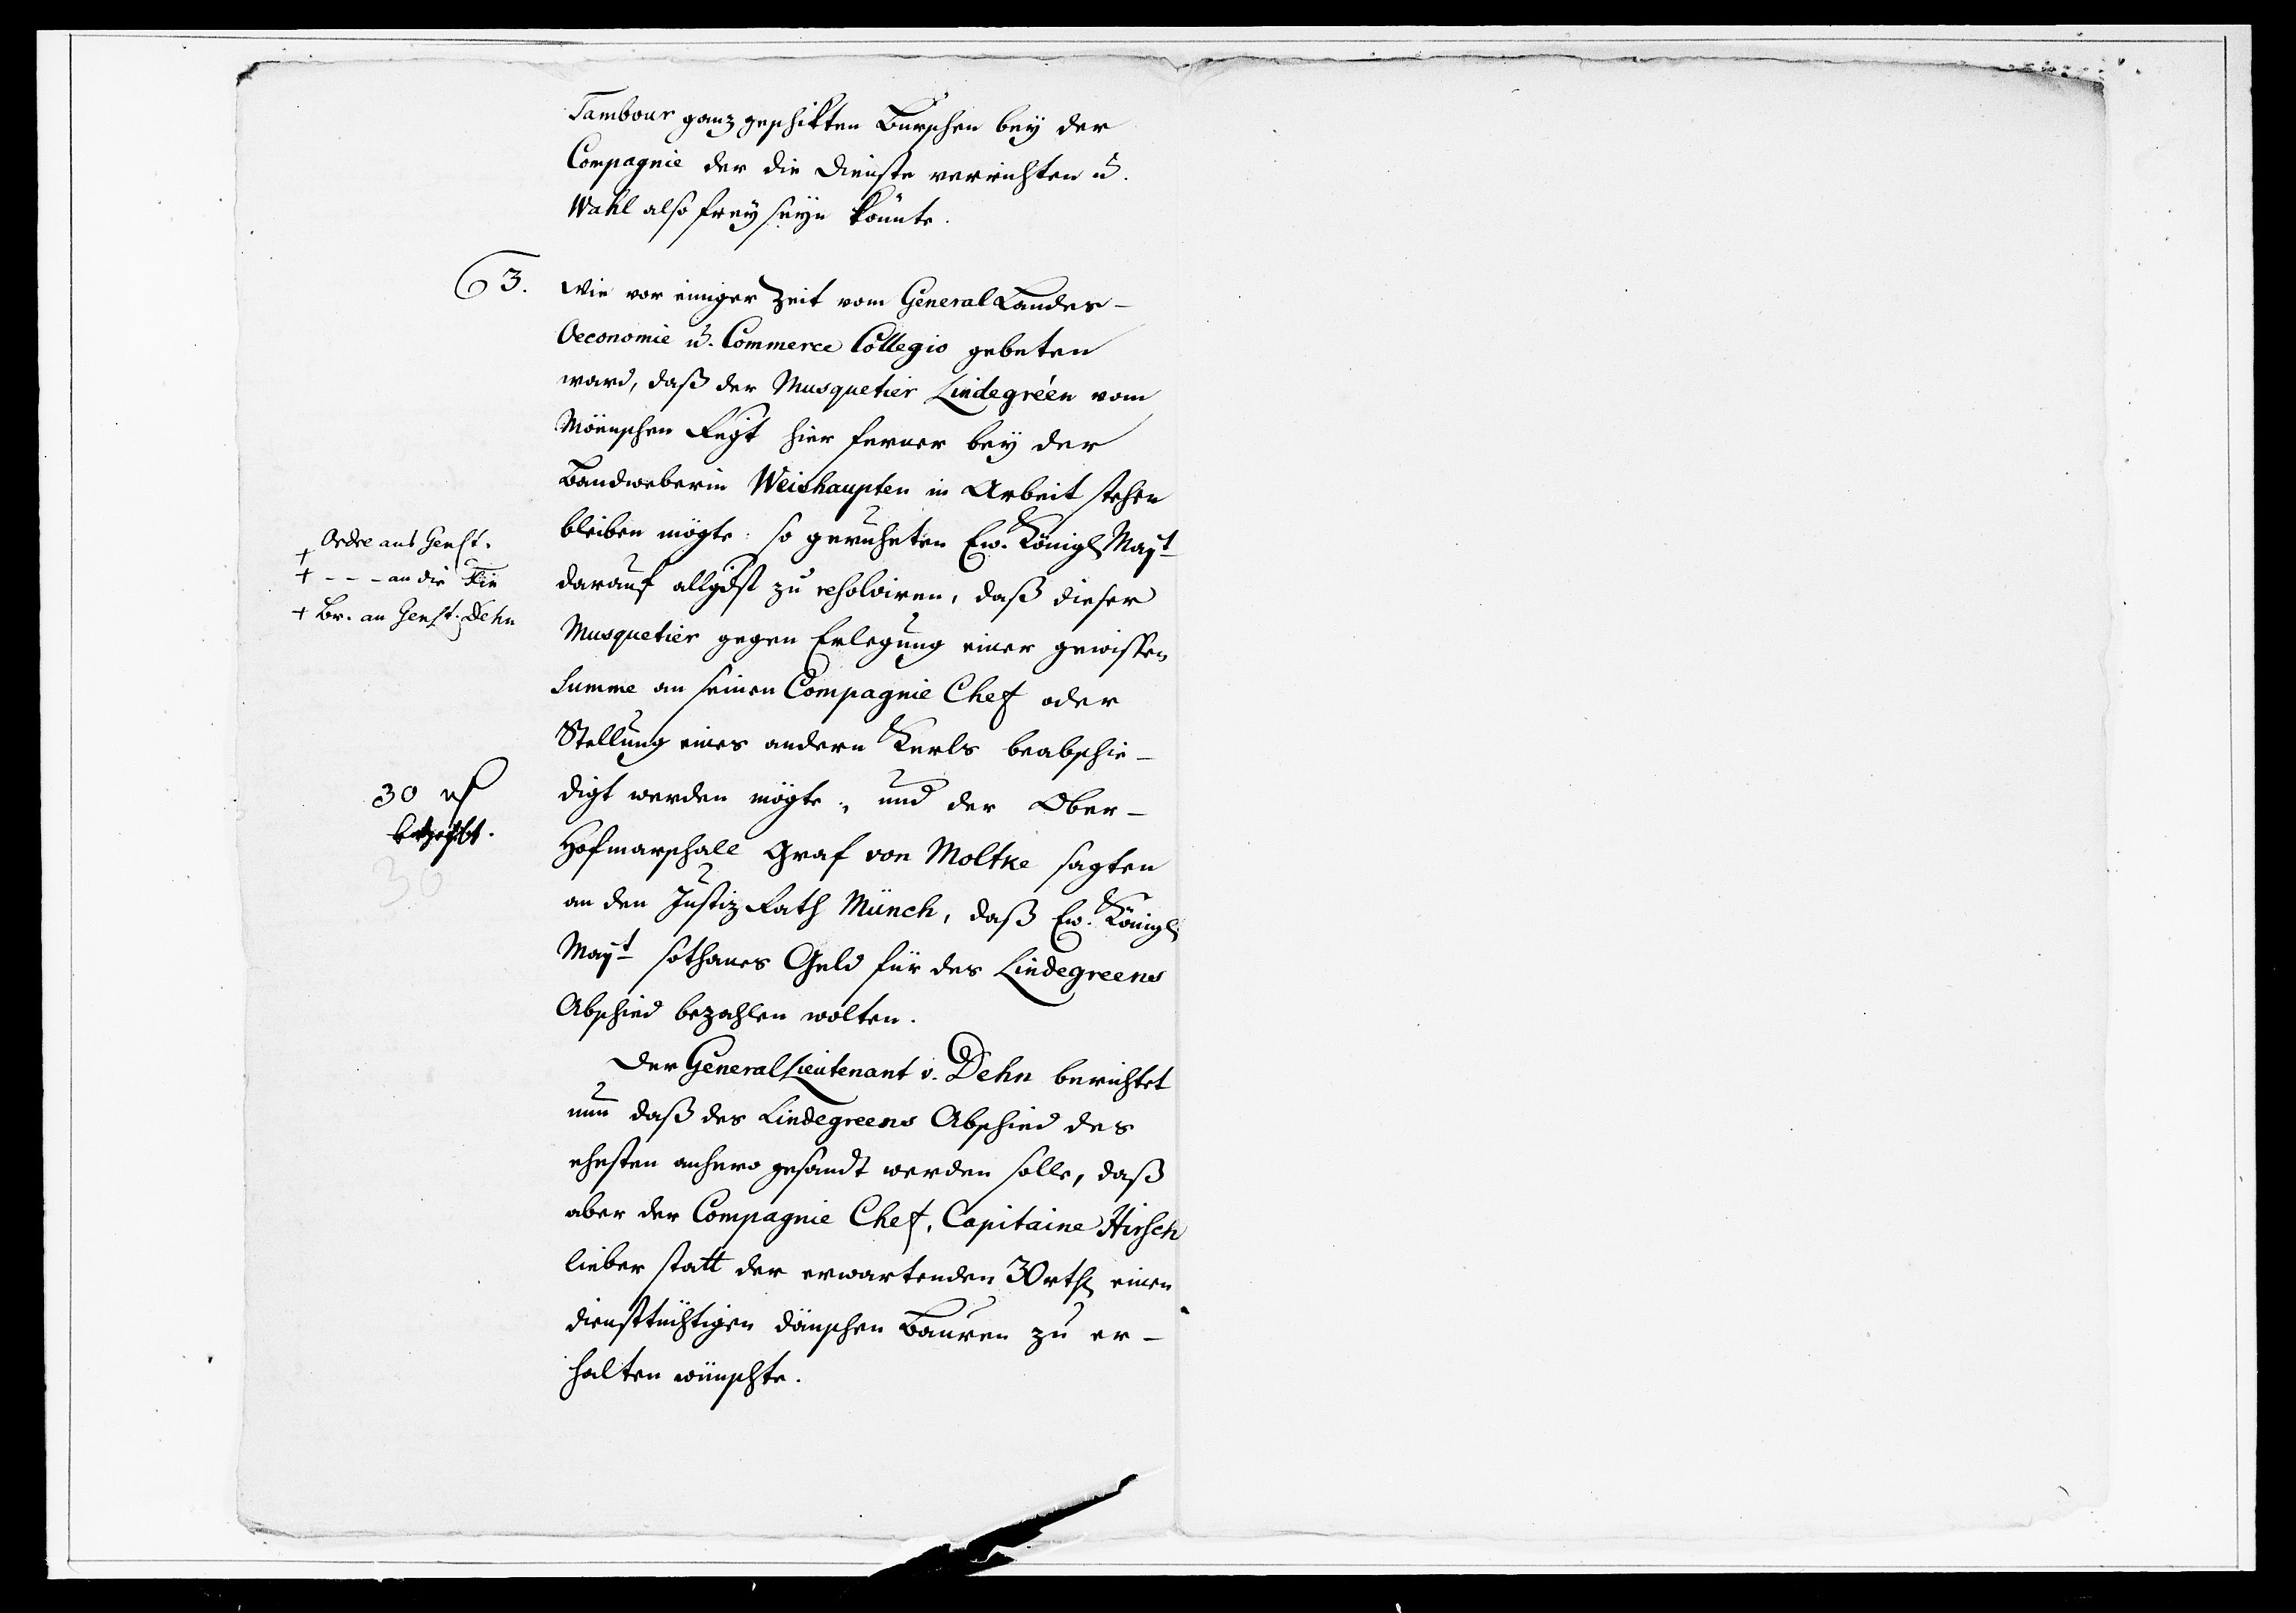 Tambour ganz geschikten Burschen bey der
Compagnie der die Dienste verrichten u.
Wahl also frey seyn könnte.
3. Wie vor einiger Zeit vom General Landes-
Oeconomie u. Commerce Collegio gebeten
ward, daß der Musquetier Lindegréen vom
Möenschen Regt hier ferner bey der
Bandweberin Weishaupten in Arbeit stehen
bleiben mögte: so geruheten Ew. Königl Mayt
darauf allgdst zu resolviren, daß dieser
Musquetier gegen Erlegung einer gewissen
Summe an seinen Compagnie Chef oder
Stellung eines andern Kerls beabschie-
digt werden mögte, und der Ober-
Hofmarschall Graf von Moltke sagten
an den Justiz Rath Münch, daß Ew. Königl
Mayt sothanes Geld für des Lindegreens
Abschied bezahlen wolten.
Der General Lieutenant v. Dehn berichtet
nun daß des Lindegreens Abschied des
ehesten anhero gesandt werden solle, daß
aber der Compagnie Chef, Capitaine Hirsch
lieber statt der erwartenden 30 rthl einen
diensttüchtigen dänschen Bauren zu er-
halten wünschte.
+ Ordre ans Genst.
+ - - - an die Fin
+ Br. an Genlt. Dehn
30 rh
30